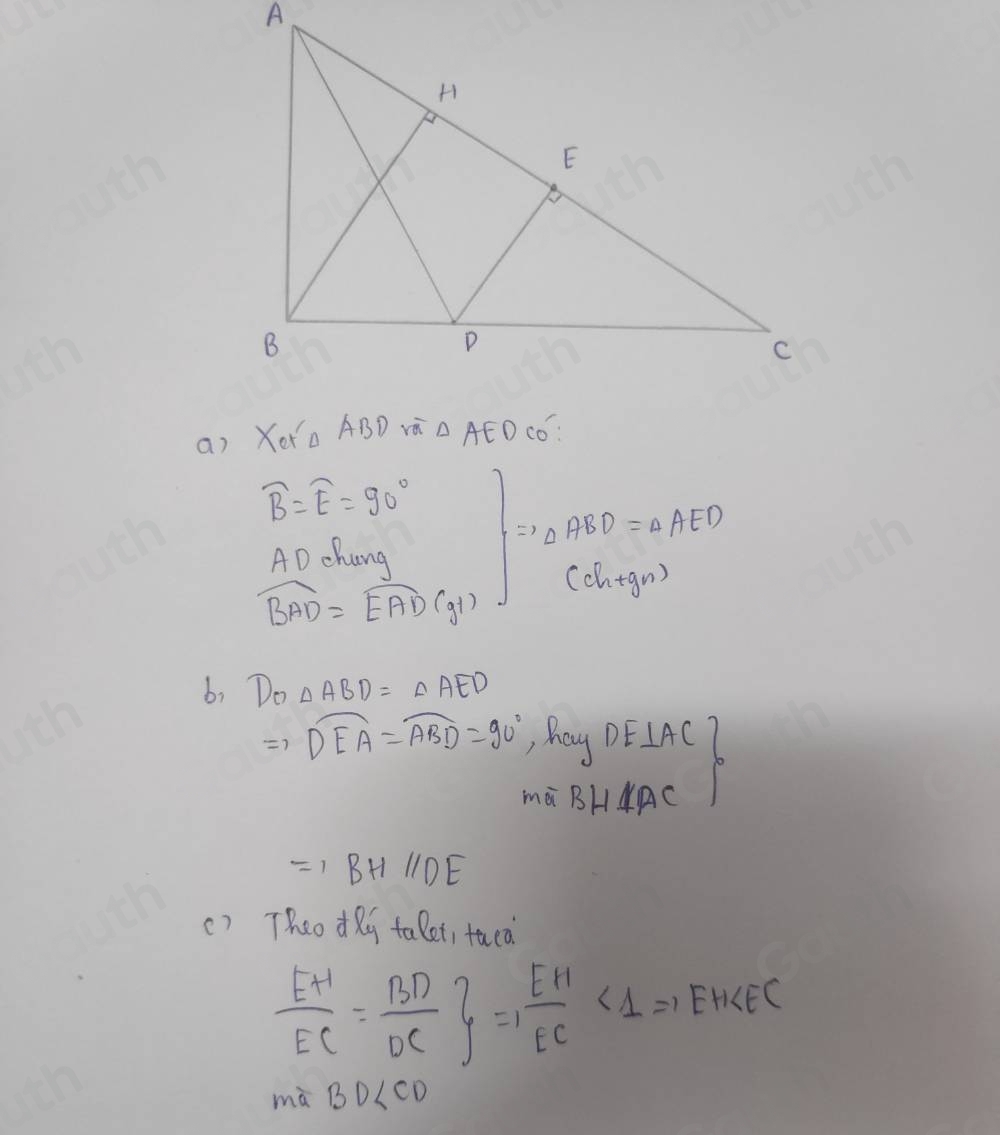 A
H
E
B
D
C
a) Xét △ ABD và △ AED có:
B̂ = Ê = 90°
AD chung
BAD = EAD (gt)
=> △ ABD = △ AED
(ch+gn)
b, Do △ ABD = △ AED
=> DEA = ABD = 90°, hay DE⊥AC
mà BH⊥AC
=> BH // DE
c) Theo đ lý talet, ta có
EH/EC = BD/DC => EH/EC < 1 => EH < EC
mà BD < CD